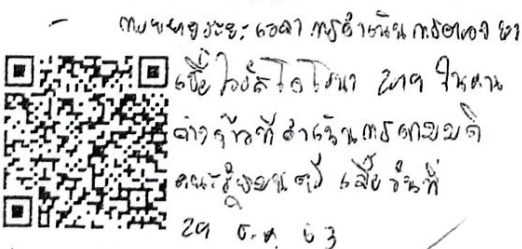 - การขยายระยะเวลา การดำเนินการของ
เชื้อไวรัสโคโรนา 2019 ใน
ต่างด้าวที่ดำเนินการตามมติ
คณะรัฐมนตรี เมื่อวันที่
29 ธ.ค. 63